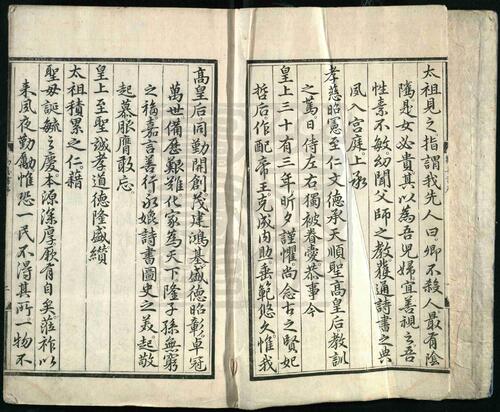 太祖見之指謂我先人曰卿不殺人最有陰
隲是女必貴其以為吾兒婦宜善視之吾
性素不敏幼聞父師之教獲通詩書之典
夙入宮庭上承
孝慈昭憲至仁文德承天順聖高皇后教訓
之篤日侍左右獨被眷愛恭事今
皇上三十有三年昕夕謹懼尚念古之賢妃
哲后作配帝王克成內助垂範悠久惟我
高皇后同勤開創茂建鴻基盛德昭彰卓冠
萬世備歷艱難化家為天下隆子孫無窮
之福嘉言善行永媲詩書圖史之美起敬
起慕服膺敢忘
皇上至聖誠孝道德隆盛纘
太祖積累之仁藉
聖母誕毓之慶本源深厚厥有自矣蒞祚以
來夙夜勤勵惟恐一民不得其所一物不